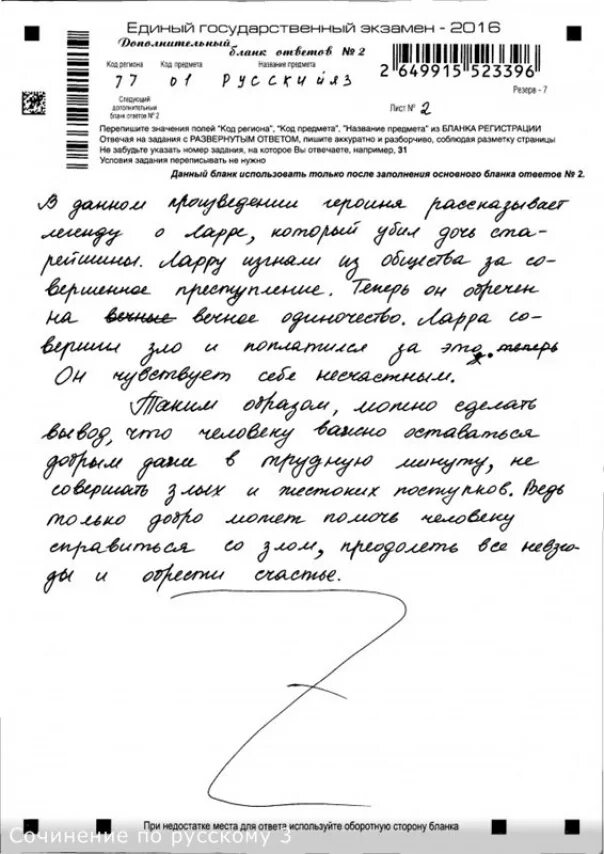 Единый государственный экзамен - 2016
Дополнительный бланк ответов № 2
Код региона Код предмета Название предмета
77 01 РУССКИЙ ЯЗ
2 649915 523396
Резерв - 7
Следующий
дополнительный
бланк ответов № 2
Лист № 2
Перепишите значения полей "Код региона", "Код предмета", "Название предмета" из БЛАНКА РЕГИСТРАЦИИ
Отвечая на задания с РАЗВЕРНУТЫМ ОТВЕТОМ, пишите аккуратно и разборчиво, соблюдая разметку страницы
Не забудьте указать номер задания, на которое Вы отвечаете, например, 31
Условия задания переписывать не нужно
Данный бланк использовать только после заполнения основного бланка ответов № 2.
В данном произведении героиня рассказывает
легенду о Ларре, который убил дочь ста-
рейшины. Ларру изгнали из общества за со-
вершенное преступление. Теперь он обречен
на вечные вечное одиночество. Ларра со-
вершил зло и поплатился за это. теперь
Он чувствует себя несчастным.
Таким образом, можно сделать
вывод, что человеку важно оставаться
добрым даже в трудную минуту, не
совершать злых и жестоких поступков. Ведь
только добро может помочь человеку
справиться со злом, преодолеть все невзго-
ды и обрести счастье.
При недостатке места для ответа используйте оборотную сторону бланка
Сочинение по русскому 3